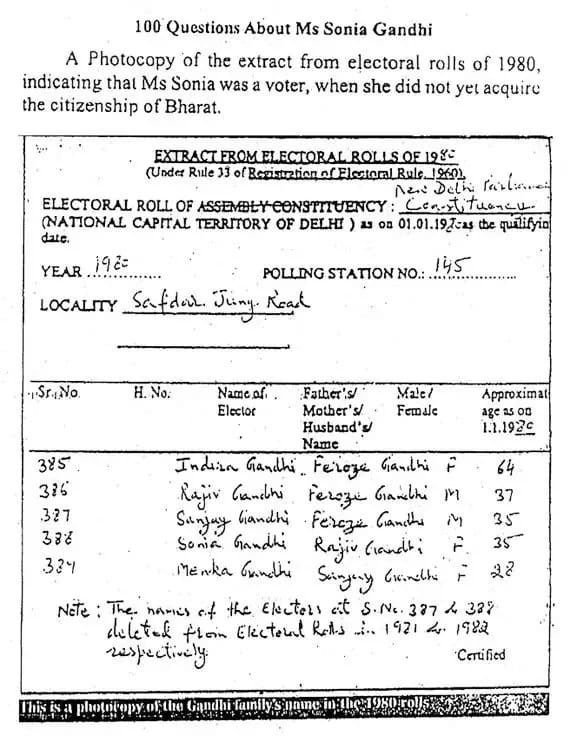 100 Questions About Ms Sonia Gandhi
A Photocopy of the extract from electoral rolls of 1980,
indicating that Ms Sonia was a voter, when she did not yet acquire
the citizenship of Bharat.
EXTRACT FROM ELECTORAL ROLLS OF 1980
(Under Rule 33 of Registration of Electoral Rule, 1960).
New Delhi
ELECTORAL ROLL OF ASSEMBLY CONSTITUENCY : Constituency
(NATIONAL CAPITAL TERRITORY OF DELHI ) as on 01.01.19 as the qualifyin
date.
YEAR 1980 POLLING STATION NO.: 145
LOCALITY Safdar Jung Road
Sr. No. H. No. Name of Father's/ Male/ Approximat
Elector Mother's/ Female age as on
Husband's/ 1.1.1980
Name
385 Indira Gandhi Feroze Gandhi F 64
386 Rajiv Gandhi Feroze Gandhi M 37
387 Sanjay Gandhi Feroze Gandhi M 35
388 Sonia Gandhi Rajiv Gandhi F 35
389 Menka Gandhi Sanjay Gandhi F 28
Note : The names of the Electors at S.No. 387 & 388
deleted from Electoral Rolls in 1981 & 1982
respectively.
Certified
This is a photocopy of the Gandhi family's name in the 1980 rolls